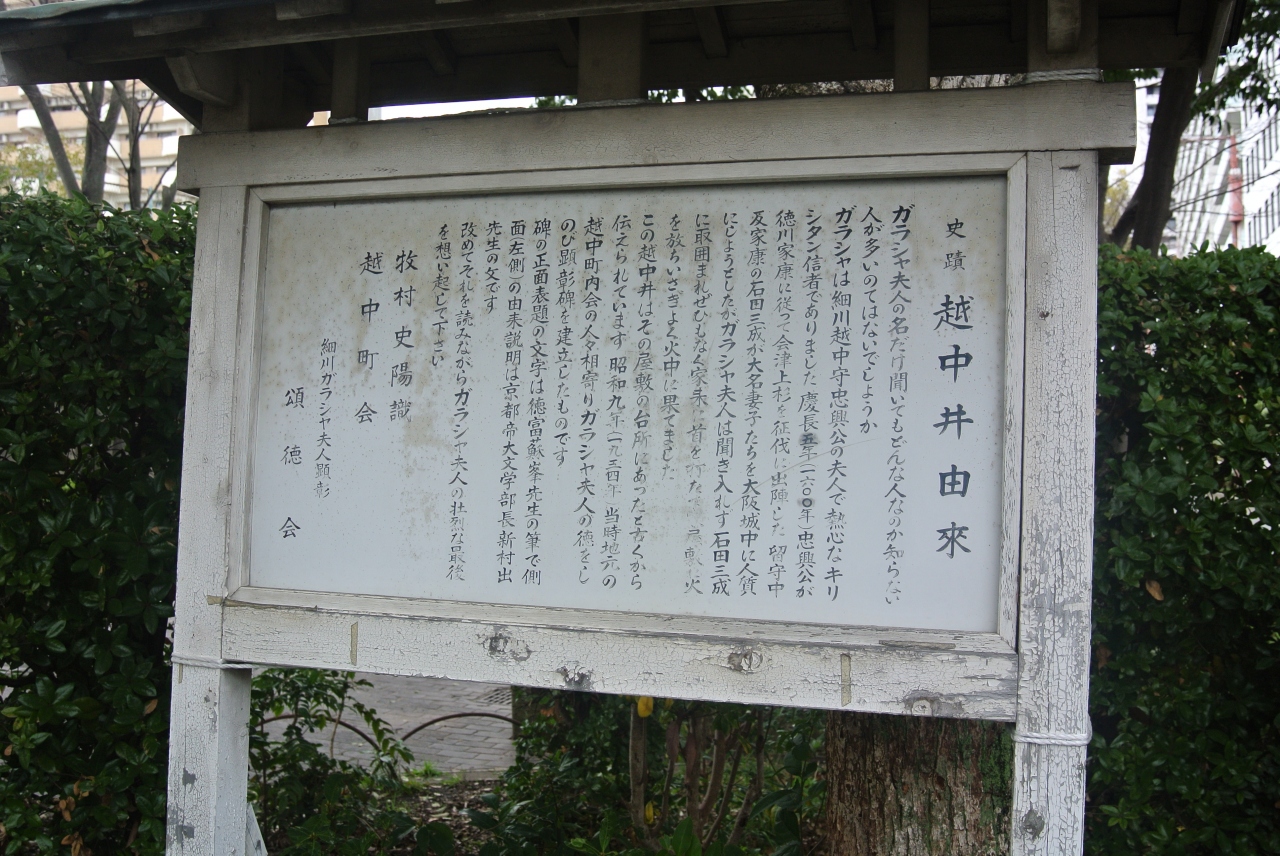 史蹟 越中井由來
ガラシャ夫人の名だけ聞いてもどんな人なのか知らない
人が多いのではないでしょうか
ガラシャは細川越中守忠興公の夫人で熱心なキリ
シタン信者でありました 慶長五年(一六〇〇年)忠興公が
徳川家康に従って会津上杉を征伐に出陣した 留守中
反家康の石田三成が大名妻子たちを大阪城中に人質
にしようとしたがガラシヤ夫人は聞き入れず石田三成
に取囲まれぜひもなく家来に首を 火
を放ちいさぎよく火中に果てました
この越中井はその屋敷の台所にあったと古くから
伝えられています 昭和九年(一九三四年)当時地元の
越中町内会の人々相寄りガラシヤ夫人の徳をし
のび顕彰碑を建立したものです
碑の正面表題の文字は徳富蘇峯先生の筆で側
面(左側)の由来説明は京都帝大文学部長新村出
先生の文です
改めてそれを読みながらガラシャ夫人の壮烈な最後
を想い起して下さい
牧村史陽識
越中町会
細川ガラシャ夫人顕彰
頌徳会